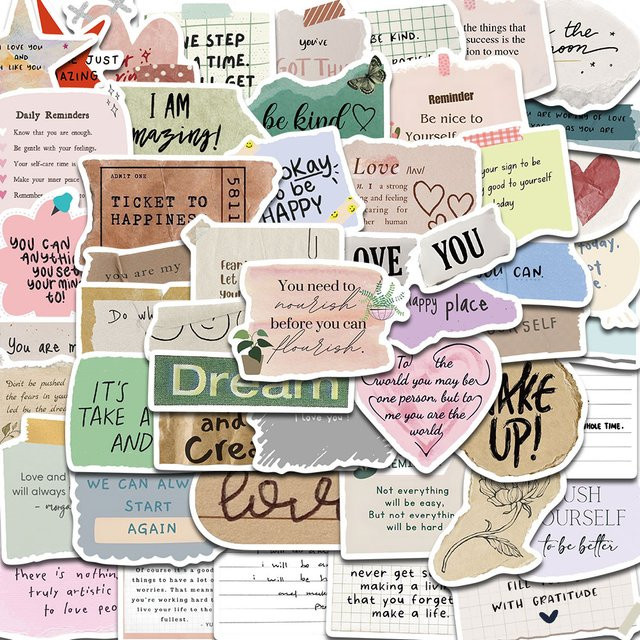 LOVE YOU
AND
LIKE YOU
JUST
AZING
NE STEP
A TIME.
LL GET
you've
GOT THI
BE KIND.
the things that
success is the
ion to move
the
moon
Daily Reminders
Know that you are enough.
Be gentle with your feelings.
Your self-care is
Make your inner peace
Remember
I AM
amazing!
be kind
Reminder
Be nice to
Yourself
ARE WORTHY OF LOVE
AS YOU ARE
ADMIT ONE
TICKET TO
HAPPINES
5811
OKAY
to be
HAPPY
Love /lʌv/
n. 1 a strong
ng and feeling
caring for
ther human
your sign to be
good to yourself
today
YOU CAN
ANYTHING
YOU SET
YOUR MIND
TO!
you are my
Fear
Let
You
OVE
YOU
today.
not
You need to
nourish
before you can
flourish.
U CAN.
happy place
RSELF
Do wh
You are m
Dream
To the
world you may be
one person, but to
me you are the
world
Don't be pushed
the fears in your
led by the dre
IT'S
TAKE A
AND
and
Crea
I love you
AKE
UP!
WHOLE TIME.
Love and
will always
WE CAN ALW
START
AGAIN
love
REMI
Not everything
will be easy,
But not everythin
will be hard
USH
OURSELF
to be better
there is nothin
truly artistic
to love peo
Of course it's a good
things to have a lot o
worries. That means
you're working hard
live your life to the
fullest.
i will be
i will be
and
never get s
making a livi
that you forget
make a life.
FILL
WITH GRATITUDE